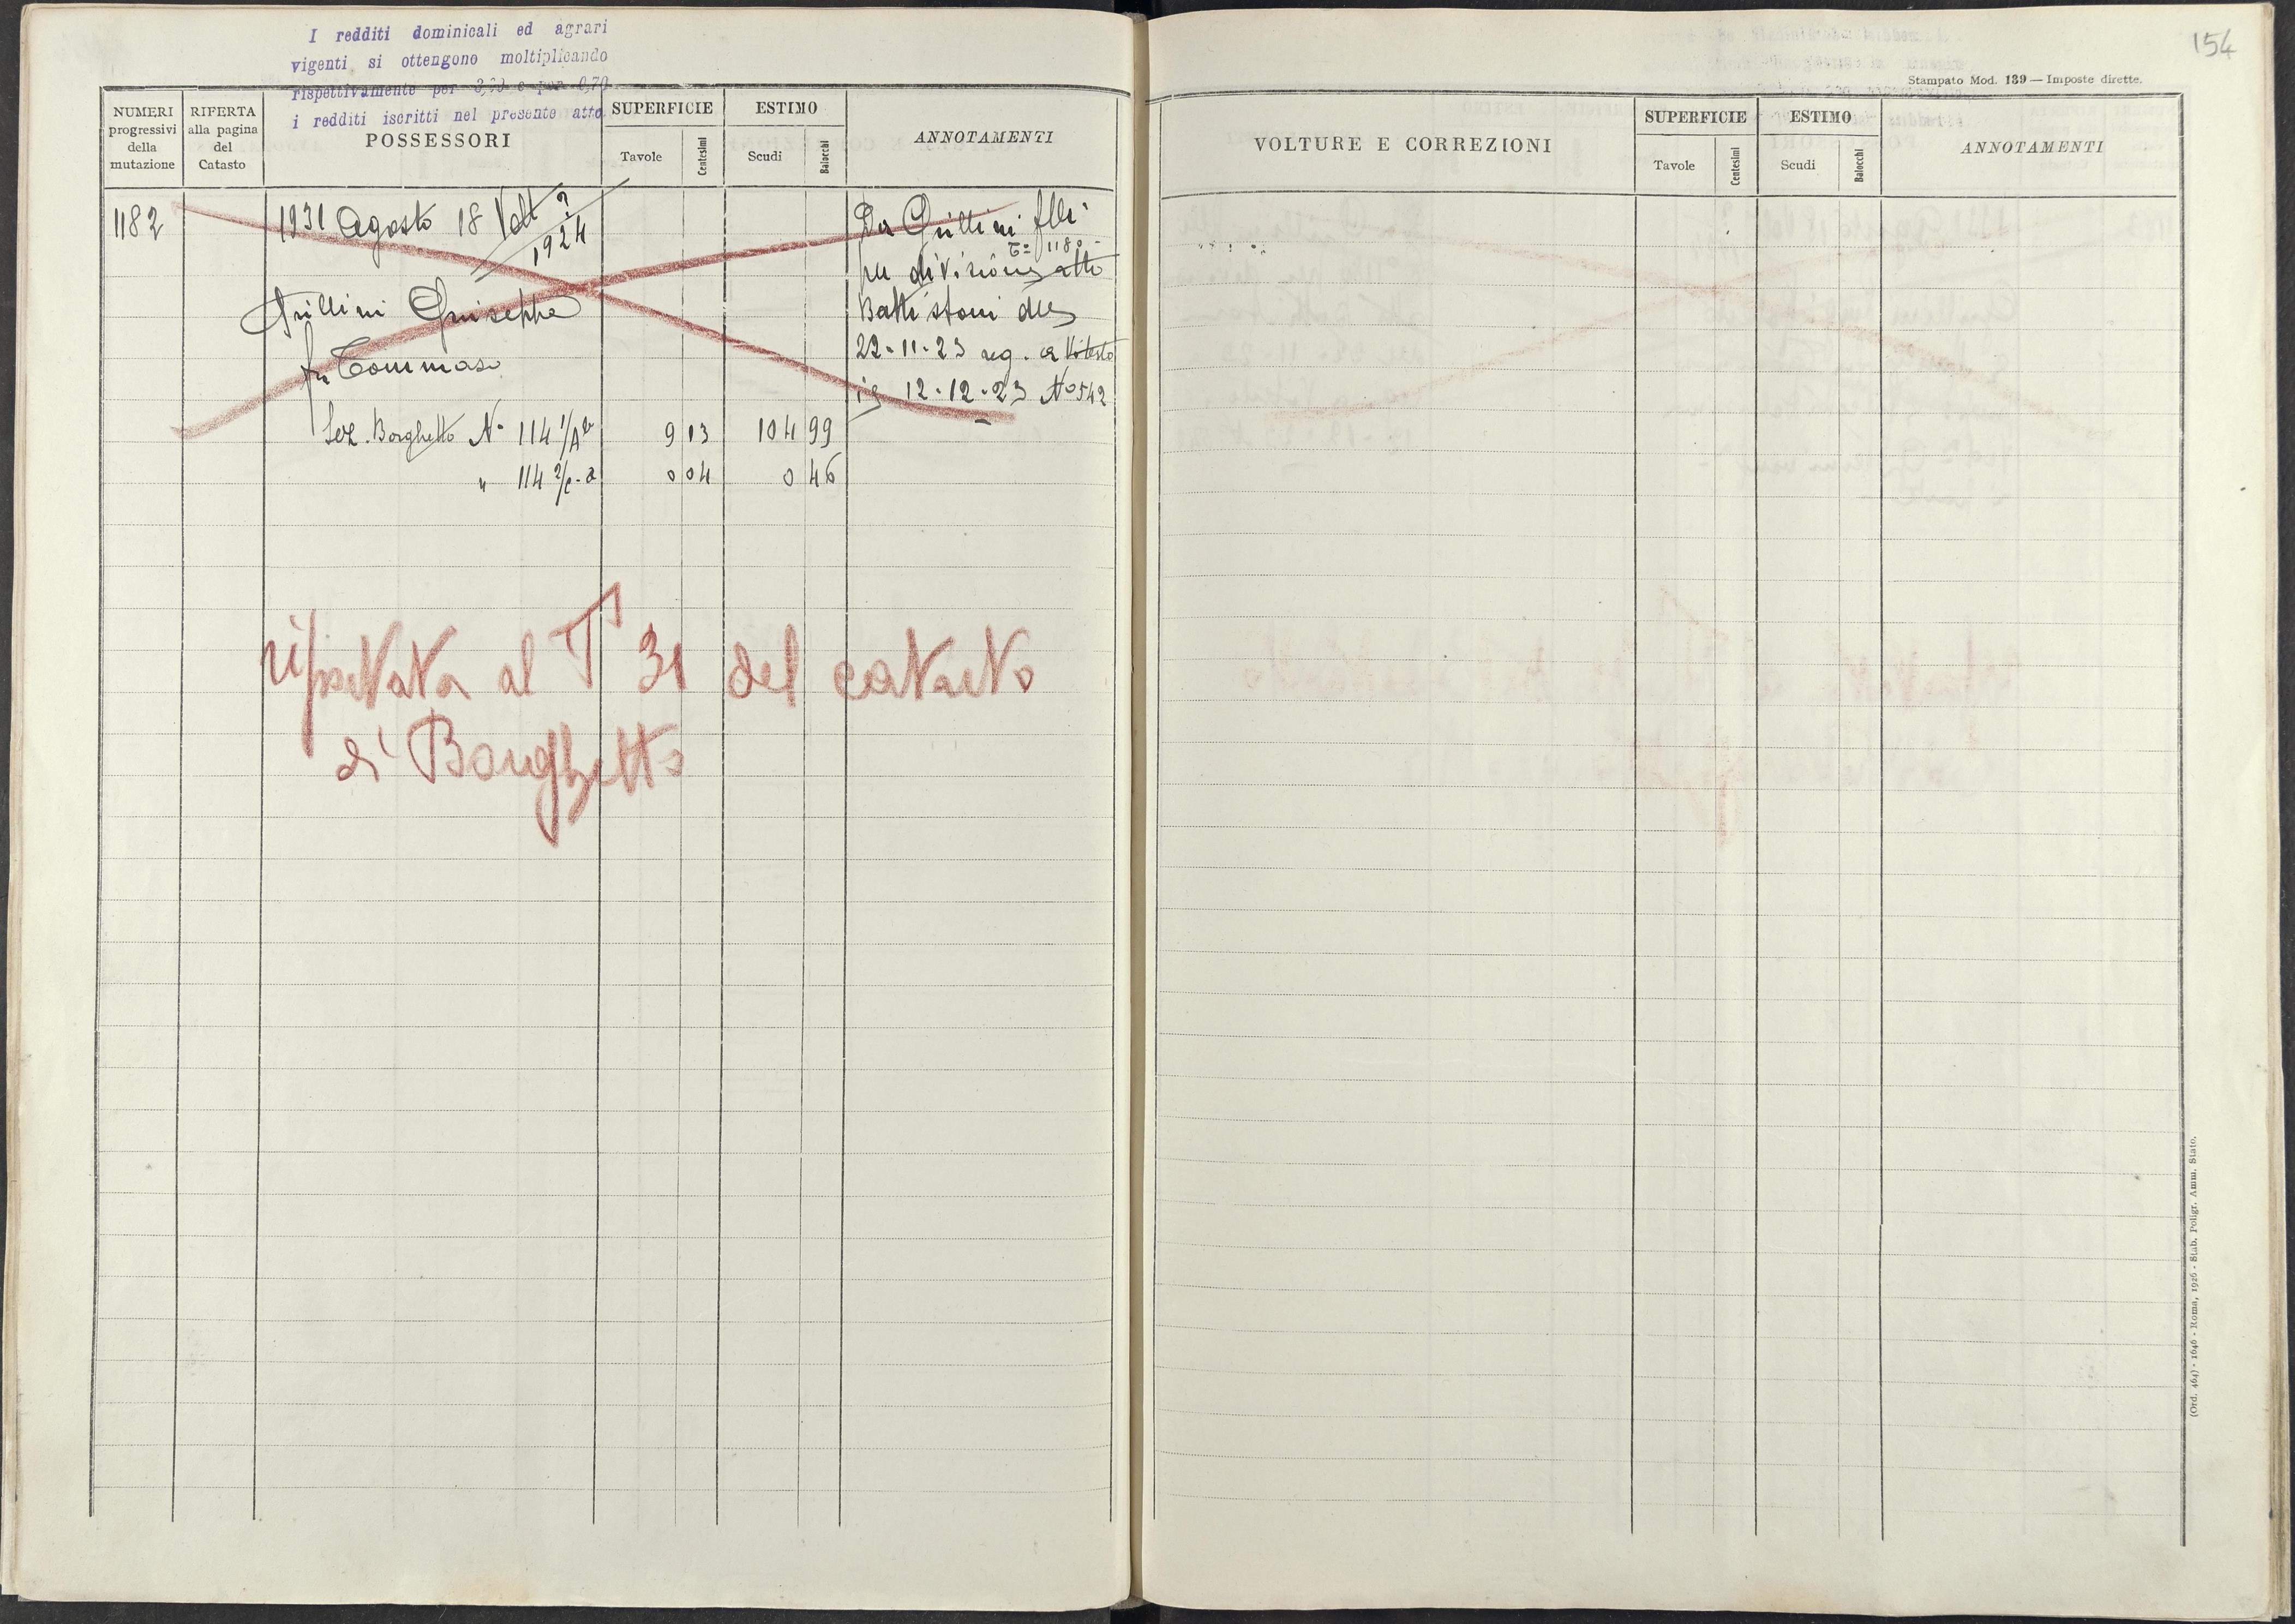 I redditi dominicali ed agrari
vigenti si ottengono moltiplicando
rispettivamente per e per 0,70
i redditi iscritti nel presente atto
NUMERI progressivi della mutazione
RIFERTA alla pagina del Catasto
POSSESSORI
SUPERFICIE
Tavole
Centesimi
ESTIMO
Scudi
Baiocchi
ANNOTAMENTI
1182
1931 Agosto 18 Volt 2/1924
Grillini Giuseppe
fu Tommaso
Sez. Borghetto N° 114 1/A
9 13
104 99
" 114 2/c-a
0 04
0 46
Da Grillini flli
1180
per divisione atto
Battistoni del
22-11-23 reg. a
12-12-23 N° 542
riportata al 31 del catasto
di Borghetto
154
Stampato Mod. 139 — Imposte dirette.
VOLTURE E CORREZIONI
SUPERFICIE
Tavole
Centesimi
ESTIMO
Scudi
Baiocchi
ANNOTAMENTI
(Ord. 464) - 1646 - Roma, 1926 - Stab. Poligr. Amm. Stato.